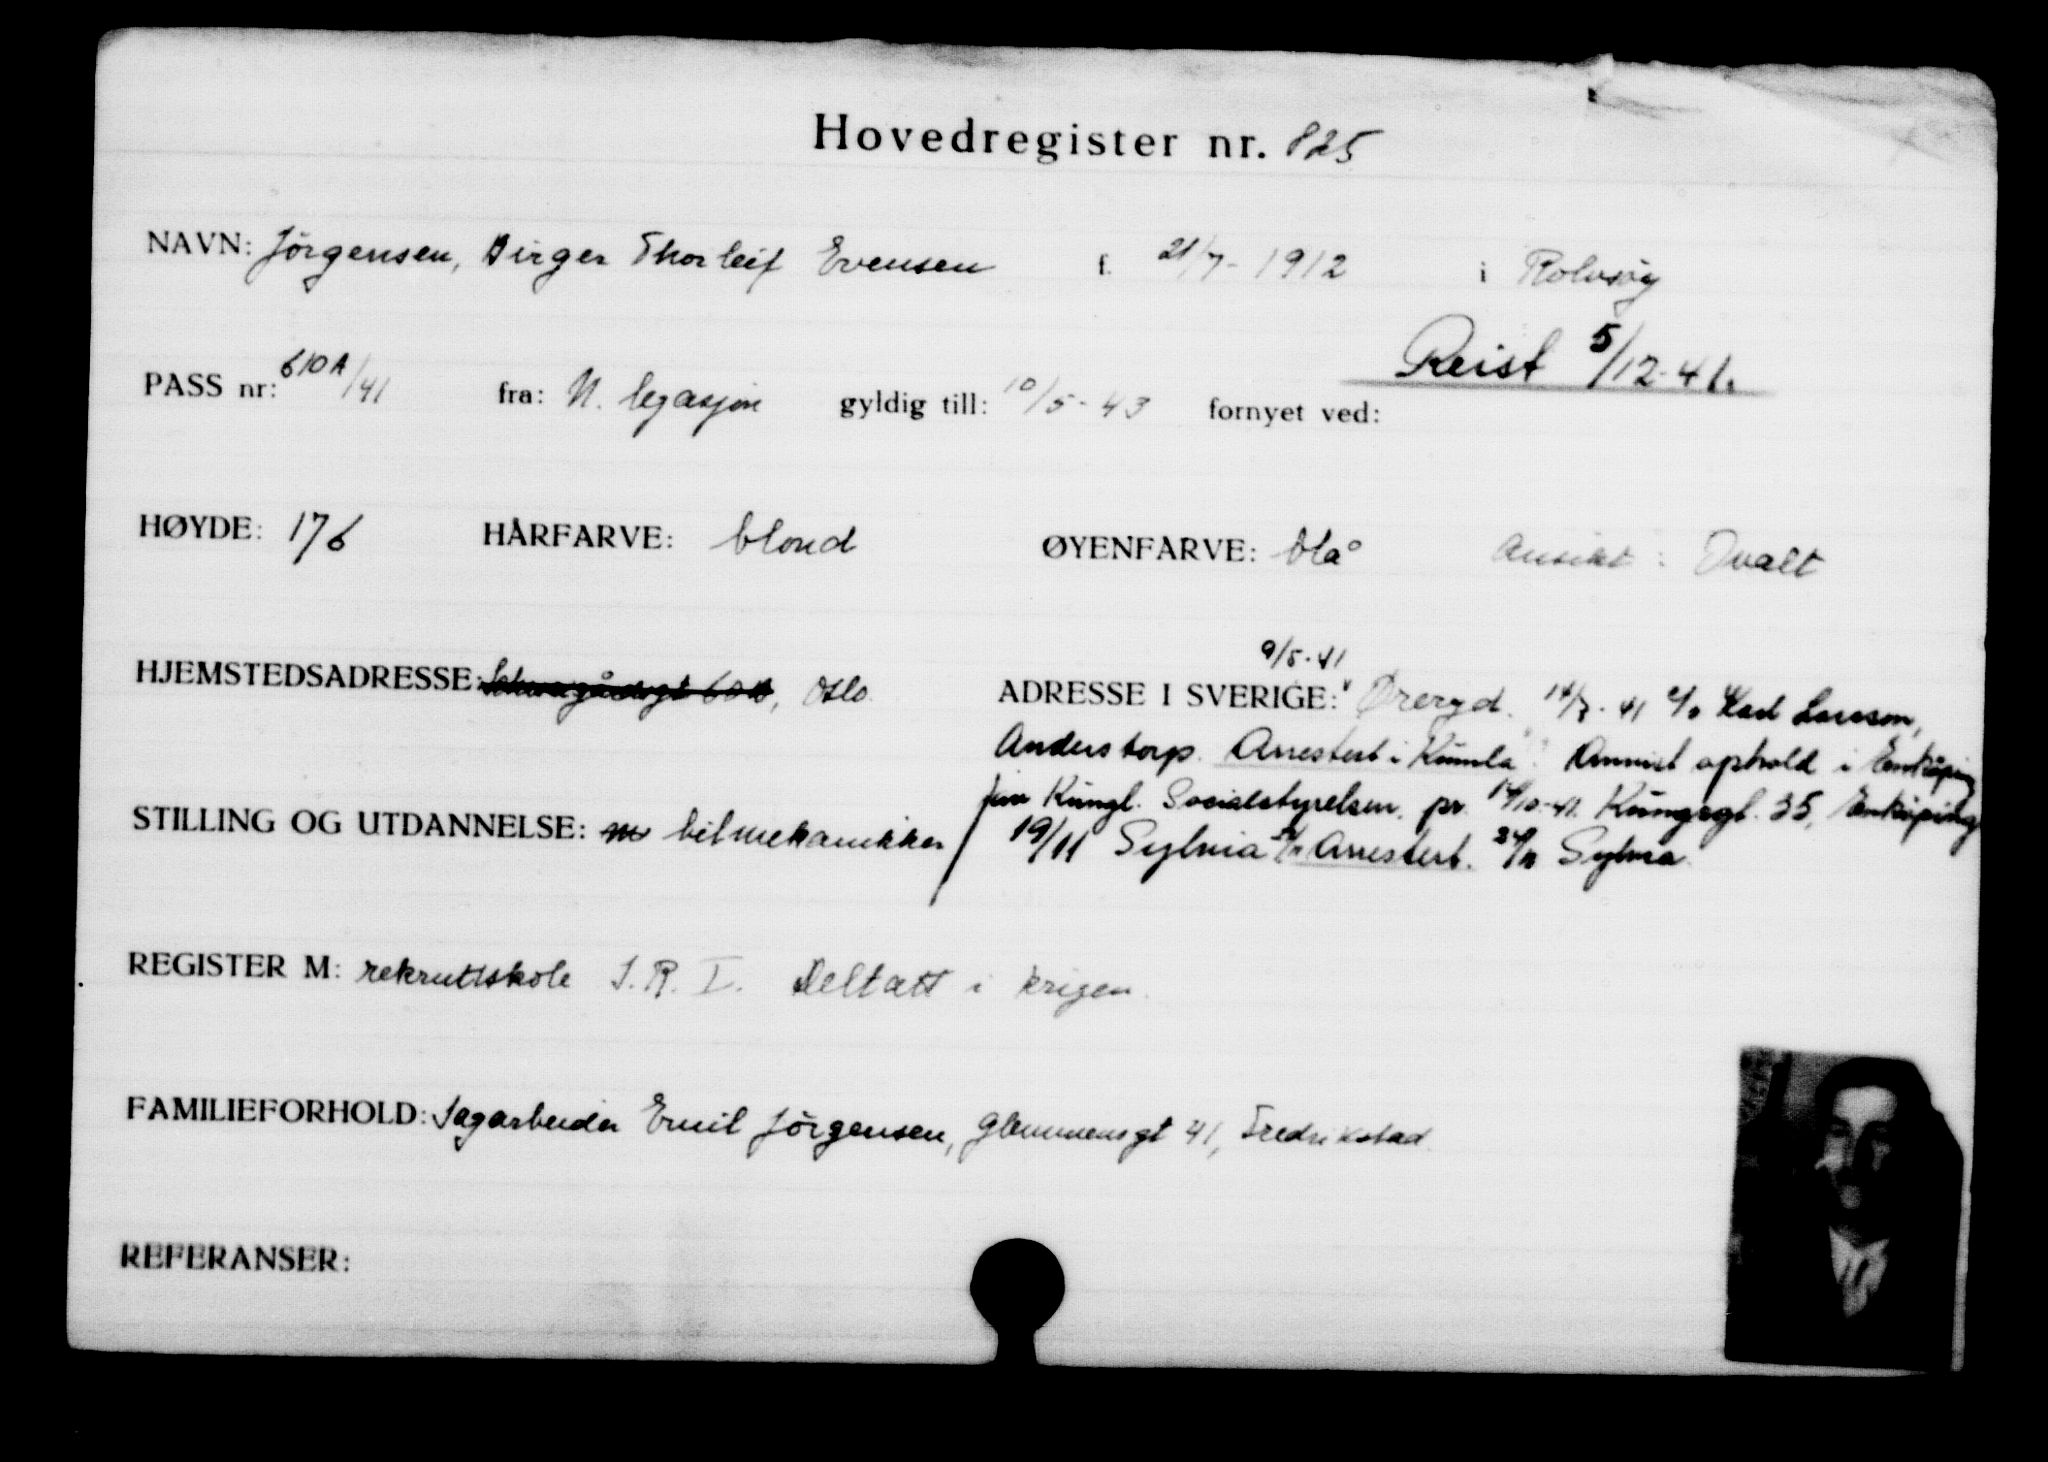 Hovedregister nr. 825
NAVN: Jörgensen, Birger Thorleif Evensen f. 21/7-1912 i Rolvsøy
Reist 5/12-41.
PASS nr: 610A/41 fra: N. legasjon gyldig till: 10/5-43 fornyet ved:
HØYDE: 176 HÅRFARVE: blond ØYENFARVE: blå Ansikt: Ovalt
9/5-41
HJEMSTEDSADRESSE: 60 Oslo. ADRESSE I SVERIGE: Øreryd. 14/7-41 c/o Karl Larsson,
Anderstorp. Arrestert i Kumla. opphold i Enköping
Kungl. Socialstyrelsen. pr. 14/10-41. Kungsgt. 35, Enköping
STILLING OG UTDANNELSE: bilmekanikker / 19/11 Sylvia Arrestert. Sylvia.
REGISTER M: rekruttskole I.R. I. Deltatt i krigen.
FAMILIEFORHOLD: Sagarbeider Emil Jörgensen, Glemmensgt 41, Fredrikstad.
REFERANSER: